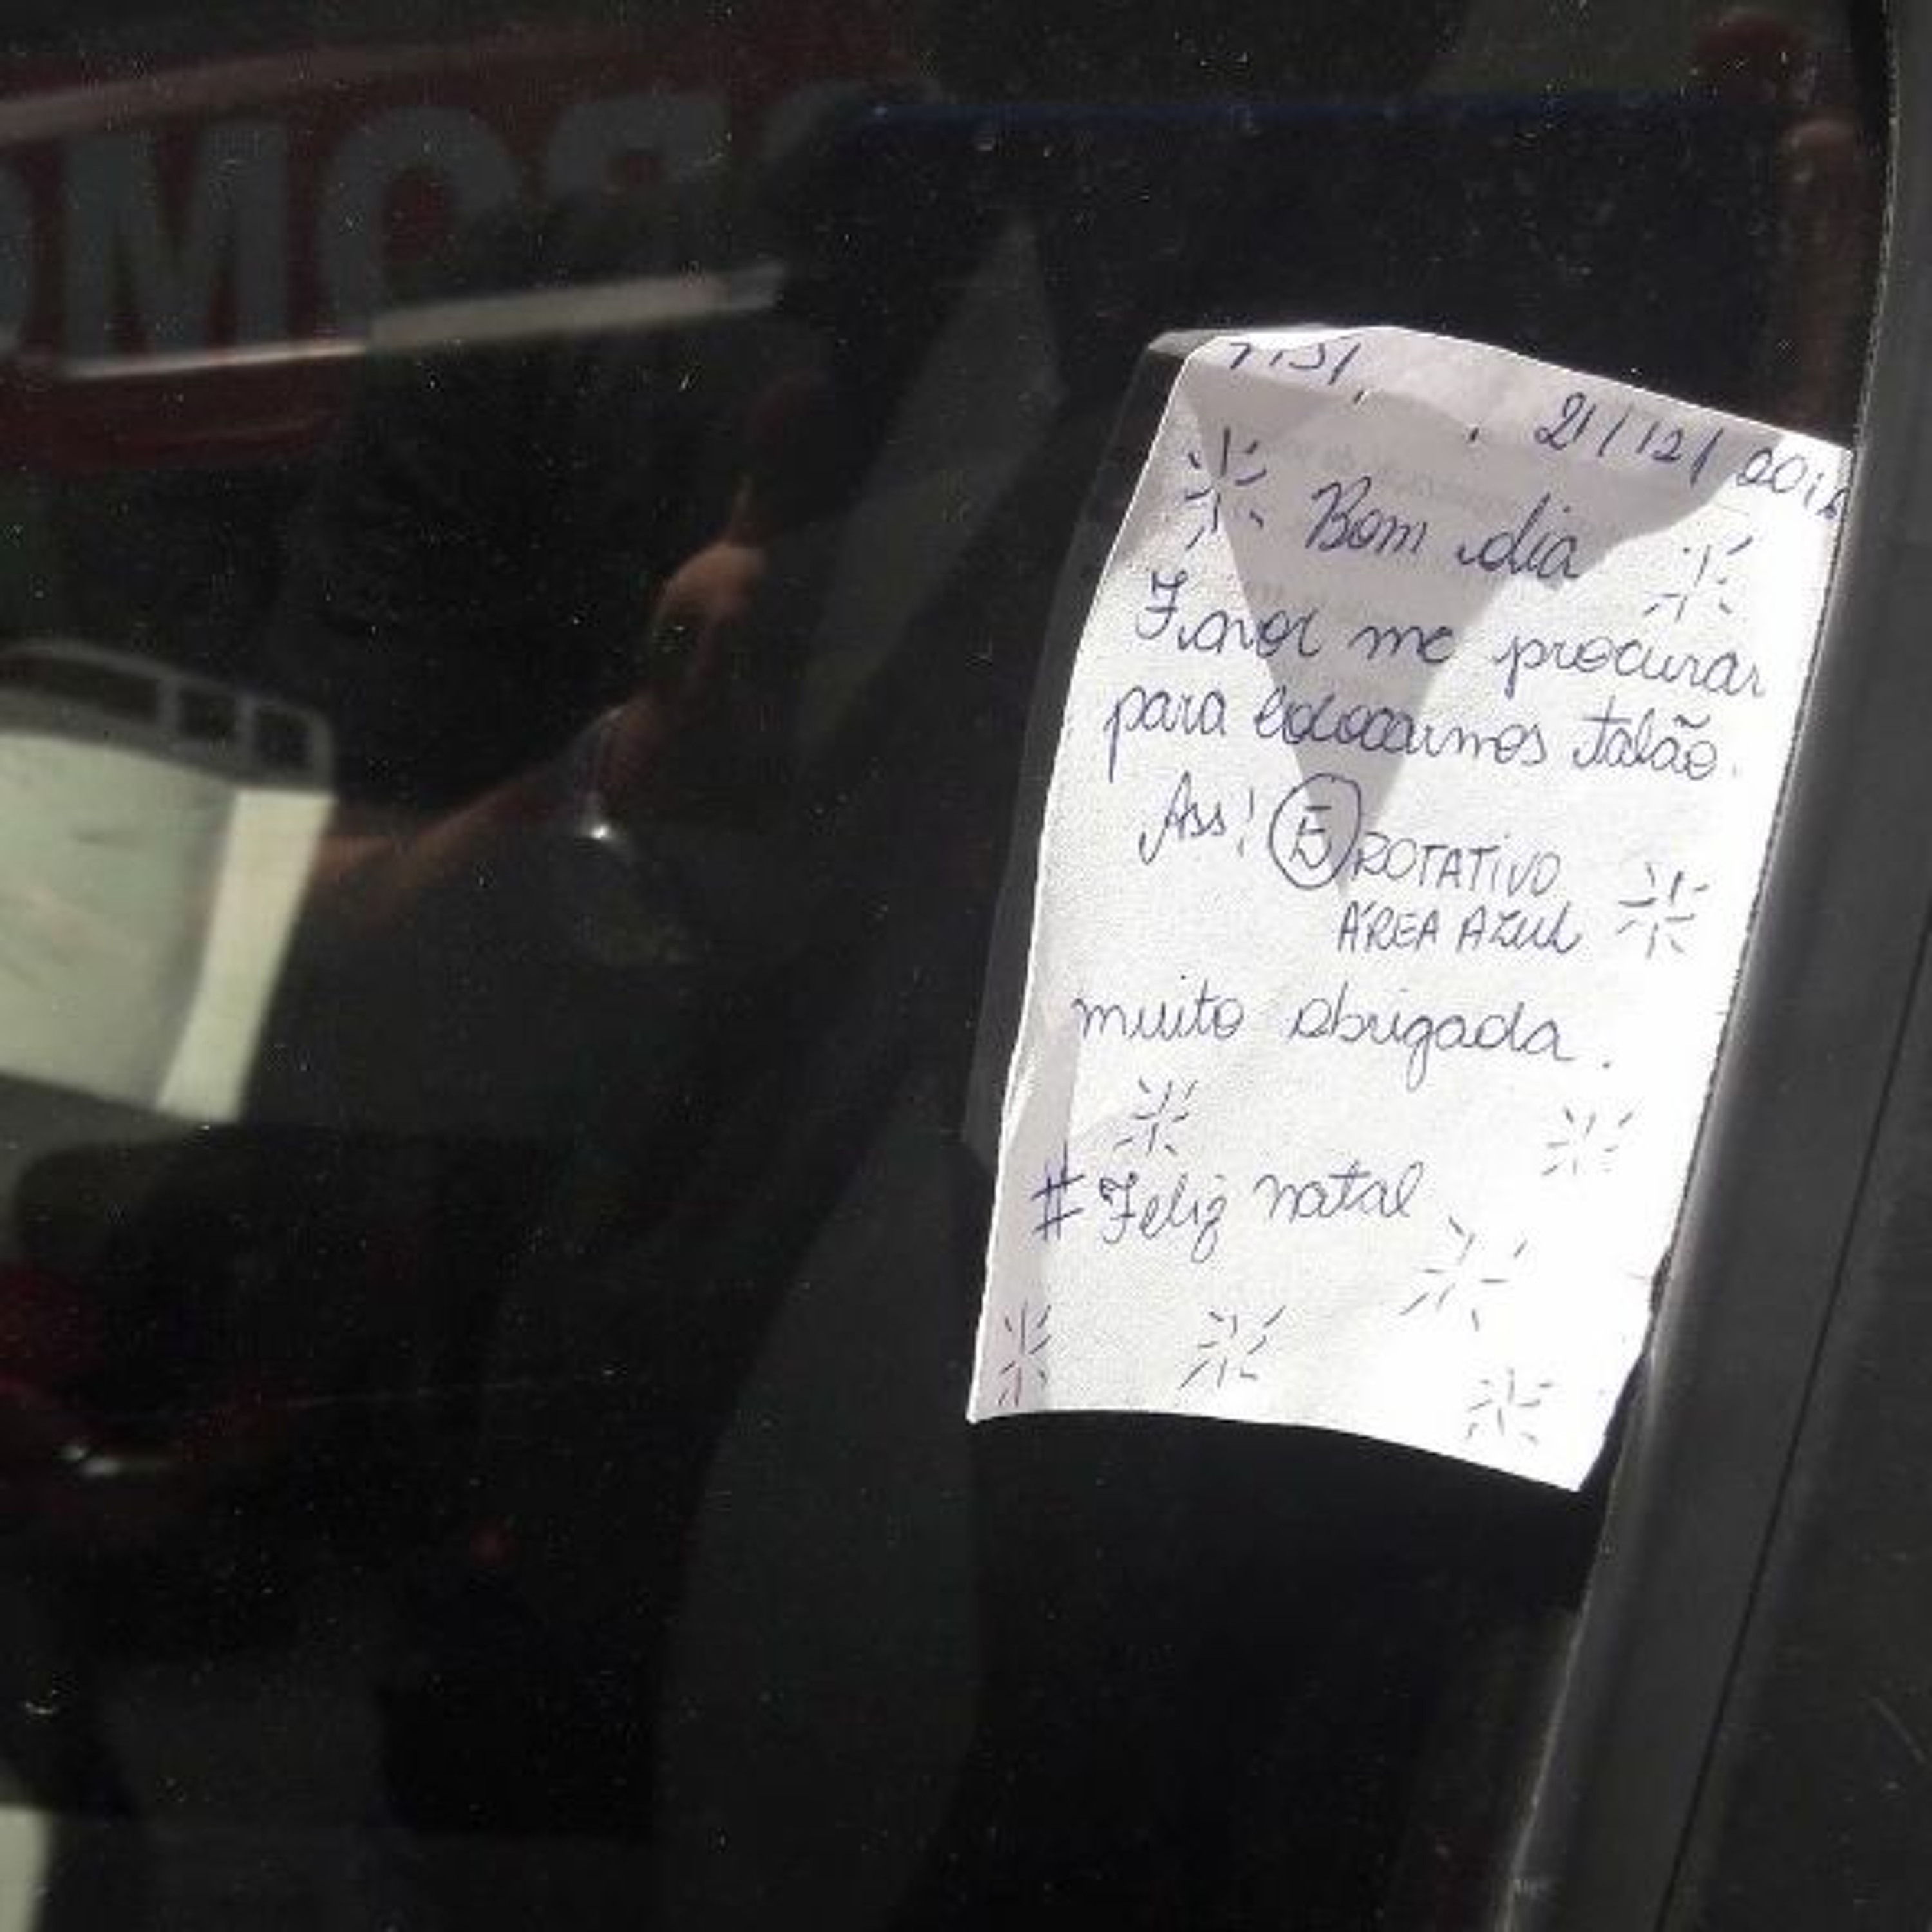 21/12/201
Bom dia
Favor me procurar
para colocarmos talão.
Ass! E ROTATIVO
ÁREA AZUL
muito obrigada.
#Feliz natal